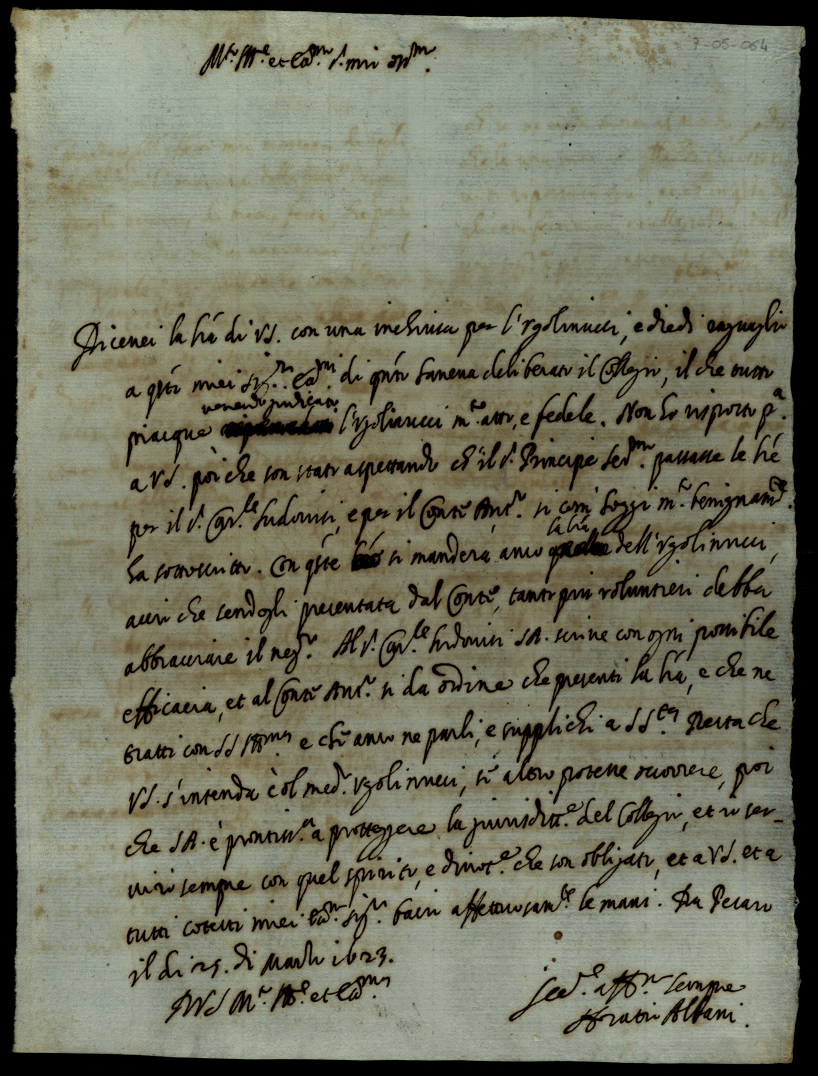 7-05-064
M.to Ill.re et Ecc.mo S.r mio oss.mo
Ricevei la l̃ra di VS. con una inchiusa per l'Ugolinucci, e diedi ragguaglio
a q̃sti miei Sig.ri Ecc.mi di q̃nto haveva deliberato il Collegio, il che tutti
piacque venendo giudicato l'Ugolinucci m.to atto, e fedele. Non ho risposto p.a
a VS. poi che son stato aspettando ch'il S. Principe Ser.mo passasse le l̃re
per il S.r Car.le Ludovisi, e per il Conte Ant.o si com'hoggi m.to benignam.te
ha sottoscritto. Con q̃ste si manderà anco la l̃ra dell'Ugolinucci,
acciò che sendogli presentata dal Conte, tanto più voluntieri debba
abbracciare il neg.o Al S.r Car.le Ludovisi SA. scrive con ogni possibile
efficacia, et al Conte Ant.o si da ordine che presenti la l̃ra, e che ne
tratti con SS Ill.ma e ch'anco ne parli, e supplichi a SS.tà Resta che
VS. s'intenda col med.o Ugolinucci, se altro potesse occorrere, poi
che SA. è prontiss.a a proteggere la giurisditt.e del Collegio, et io ser-
virò sempre con quel spirito, e divot.e che son obligato, et a VS. et a
tutti cotesti miei Ecc.mi Sig.ri bacio affettuosam.te le mani. Da Pesaro
il di 25. di Marzo 1623.
D VS M.to Ill.re et Ecc.ma
Ser.e aff.mo sempre
Horatio Albani.